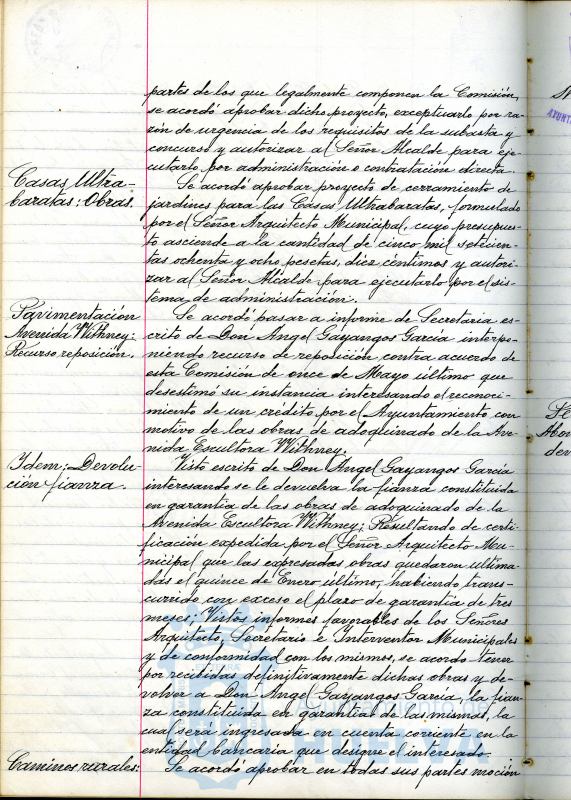 partes de los que legalmente componen la Comisión,
se acordó aprobar dicho proyecto, exceptuarlo por ra-
zón de urgencia de los requisitos de la subasta y
concurso y autorizar al Señor Alcalde para eje-
cutarlo por administración o contratación directa.
Casas Ultra-
baratas: Obras.
Se acordó aprobar proyecto de cerramiento de
jardines para las Casas Ultrabaratas, formulado
por el Señor Arquitecto Municipal, cuyo presupues-
to asciende a la cantidad de cinco mil setecien-
tas ochenta y ocho pesetas, diez céntimos y autori-
zar al Señor Alcalde para ejecutarlo por el sis-
tema de administración.
Pavimentación
Avenida Withney:
Recurso reposición.
Se acordó pasar a informe de Secretaria es-
crito de Don Angel Gayangos Garcia interpo-
niendo recurso de reposición contra acuerdo de
esta Comisión de once de Mayo último que
desestimó su instancia interesando el reconoci-
miento de un crédito por el Ayuntamiento con
motivo de las obras de adoquinado de la Ave-
nida Escultora Withney.
Ydem: Devolu-
ción fianza.
Visto escrito de Don Angel Gayangos Garcia
interesando se le devuelva la fianza constituida
en garantia de las obras de adoquinado de la
Avenida Escultora Withney; Resultando de certi-
ficación expedida por el Señor Arquitecto Mu-
nicipal que las expresadas obras quedaron ultima-
das el quince de Enero último, habiendo trans-
currido con exceso el plazo de garantia de tres
meses; Vistos informes favorables de los Señores
Arquitecto, Secretario e Interventor Municipales
y de conformidad con los mismos, se acordó tener
por recibidas definitivamente dichas obras y de-
volver a Don Angel Gayangos Garcia, la fian-
za constituida en garantia de las mismas, la
cual será ingresada en cuenta corriente en la
entidad bancaria que designe el interesado.
Caminos rurales:
Se acordó aprobar en todas sus partes moción